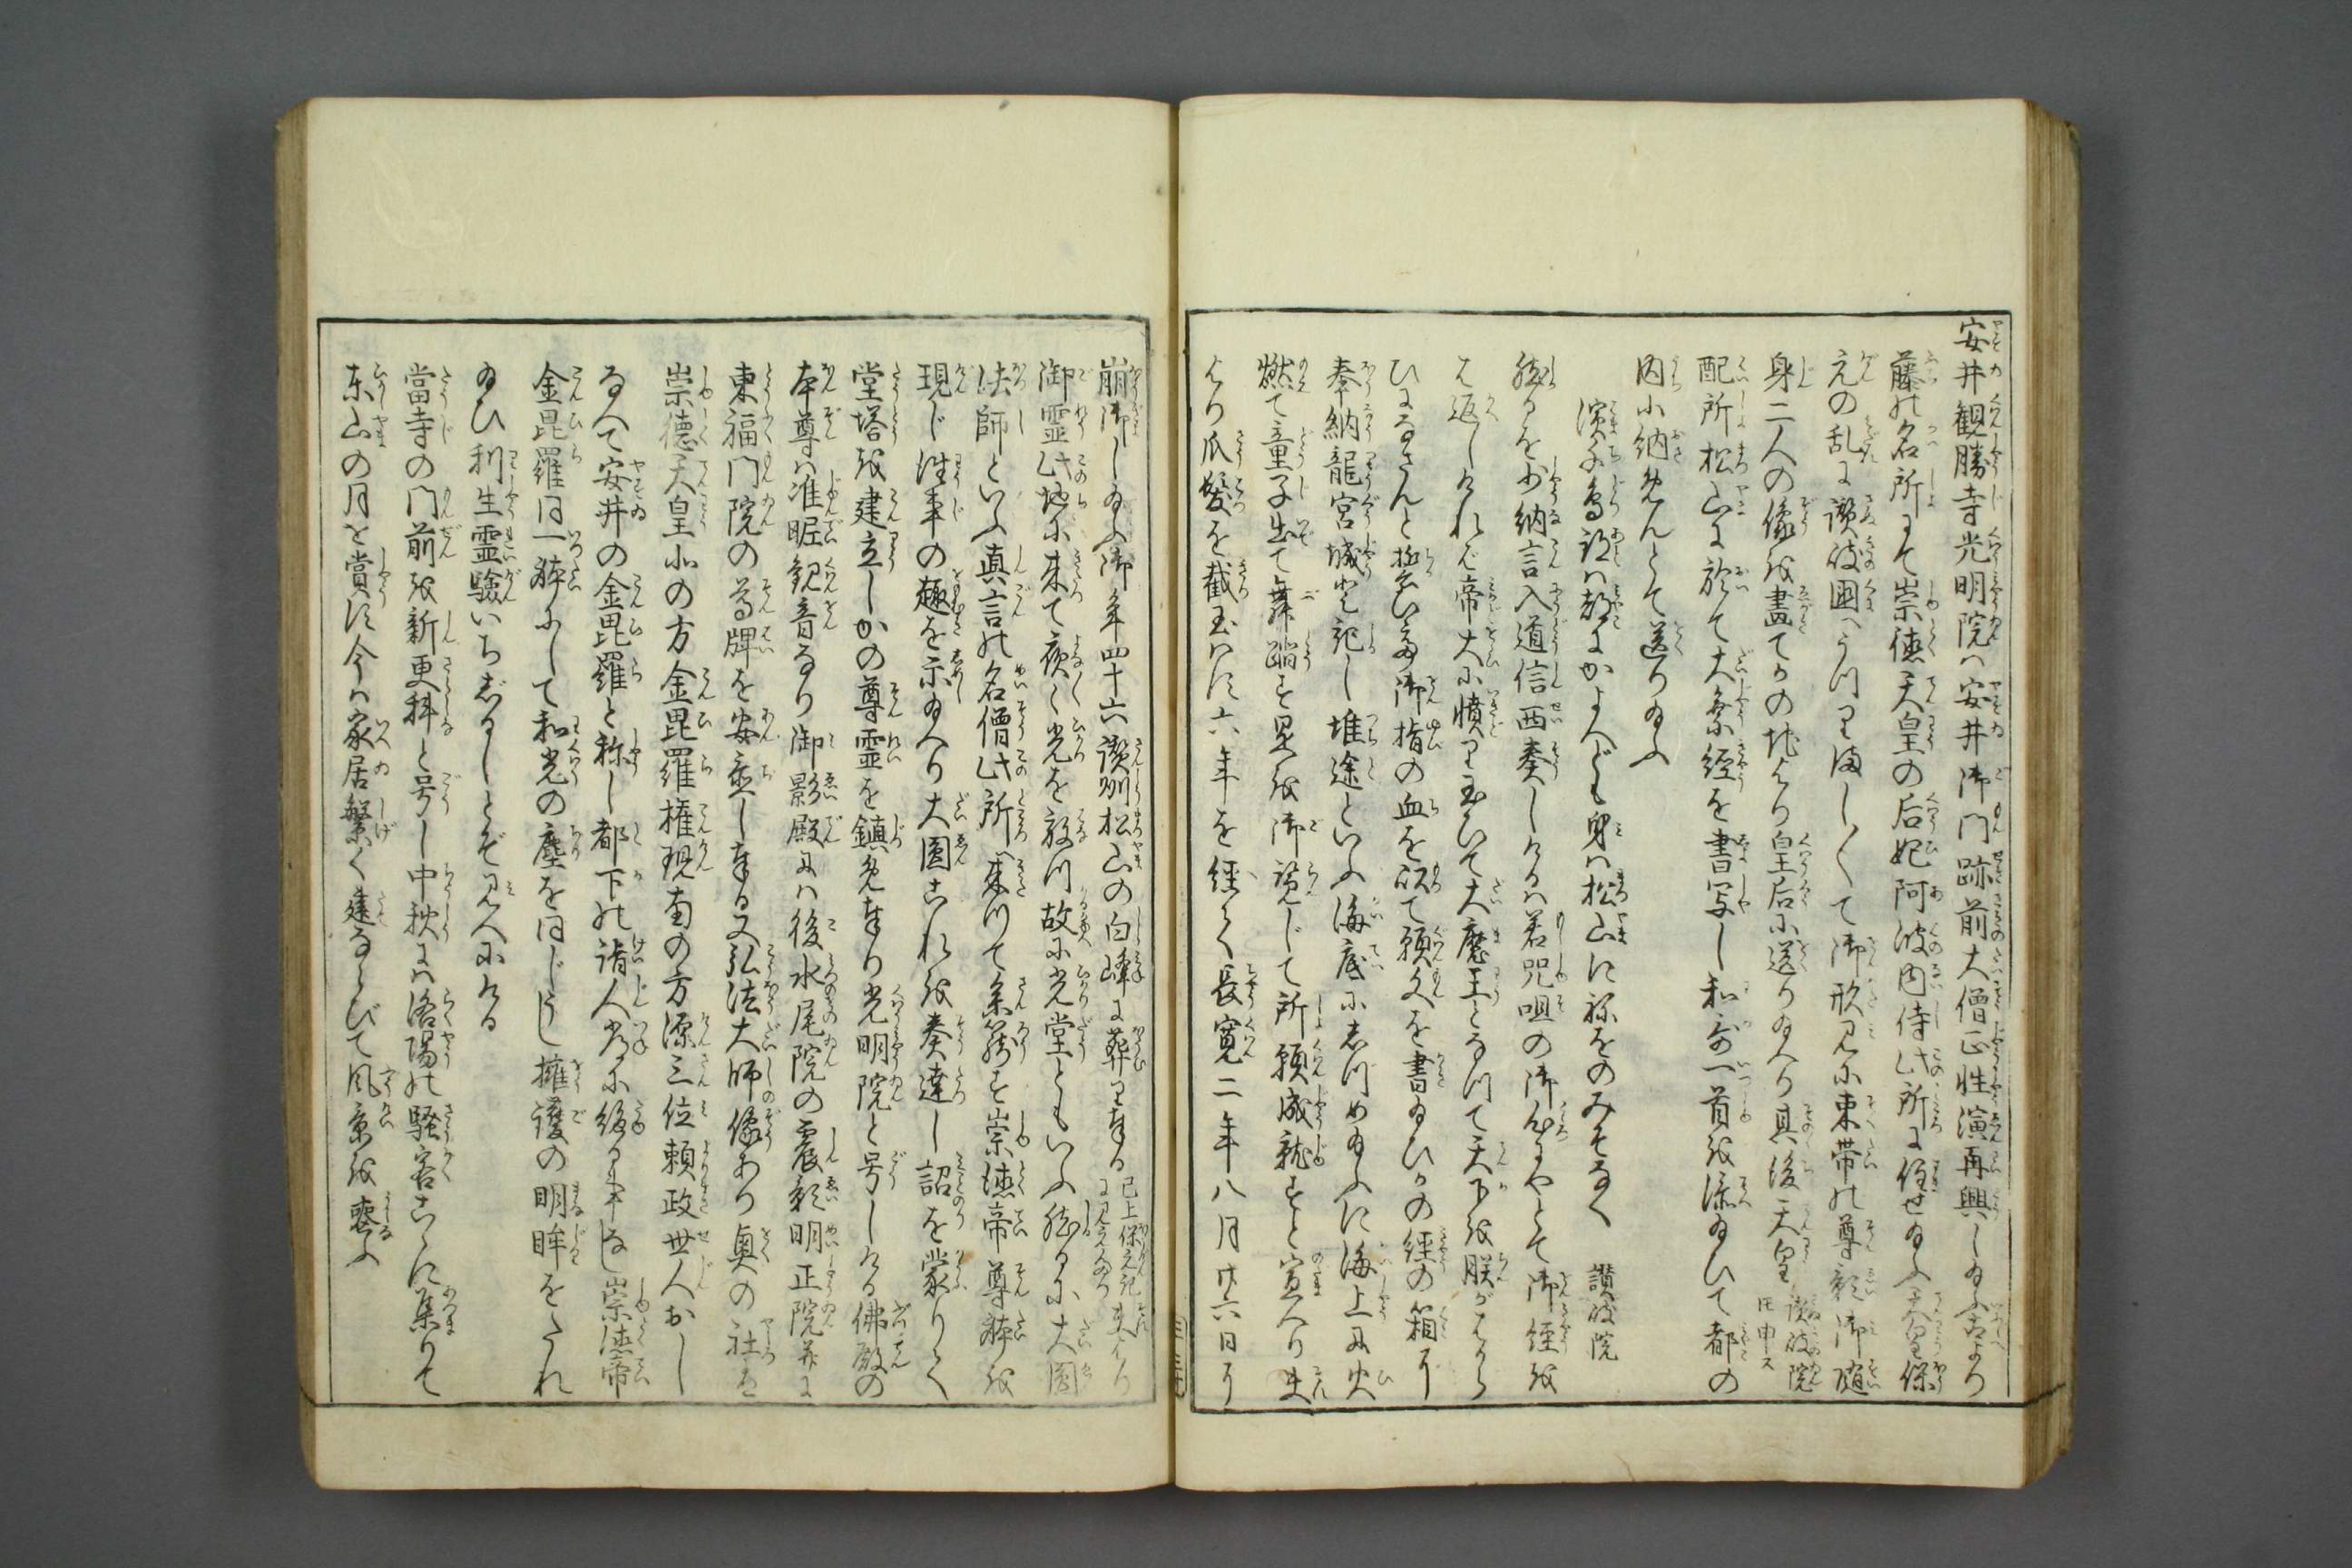 安井観勝寺光明院は安井御門跡前大僧正性演再興し給ふ古より
藤の名所にて崇徳天皇の后妃阿波内侍此所に住せ給ふ天皇保
元の乱に讃岐国へうつりましまして御形見に束帯の尊影御随
身二人の像を畫てかの地より皇后に送り給へり其後天皇讃岐院ト申ス
配所松山に於て大乗経を書写し和歌一首を添給ひて都の
内に納めんとて送り給ふ
濱千鳥跡は都にかよへども身は松山に音をのみぞなく 讃岐院
然るを少納言入道信西奏しけるは若咒咀の御心にやとて御経を
ば返しければ帝大に憤り玉ひて大魔王となつて天下を朕がはから
ひになさんと誓ひ給ふ御指の血を以て願文を書給ひかの経の箱に
奉納龍宮城と記し堆途といふ海底にしづめ給ふに海上に火
燃て童子出て舞踏す是を御覧じて所願成就すと宣へり夫
より爪髪を截玉はず六年を経て長寛二年八月廿六日に
崩御し給ふ御年四十六讃州松山の白峰に葬り奉る已上保元記に見へたり夫より
御霊此地に来て夜々光を放つ故に光堂ともいふ然るに大圓
法師といふ真言の名僧此所へ来つて参籠す崇徳帝尊体を
現じ往事の趣を示給へり大圓これを奏達し詔を蒙りて
堂塔を建立しかの尊霊を鎮め奉り光明院と号しける佛殿の
本尊は准胝観音なり御影殿には後水尾院の震影明正院并に
東福門院の尊牌を安置し奉る又弘法大師像あり奥の社は
崇徳天皇北の方金毘羅権現南の方源三位頼政世人おし
なべて安井の金毘羅と称し都下の詣人常に絡繹なし崇徳帝
金毘羅同一体にして和光の塵を同じうし擁護の明眸をたれ
給ひ利生霊験いちじるしとぞ見へにける
當寺の門前を新更科と号し中秋には洛陽の騒客こゝに集りて
東山の月を賞ず今は家居繁く建ならびて風景を喪ふ